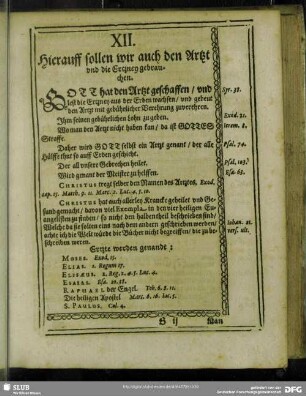 XII.
Hierauff sollen wir auch den Artzt
vnd die Ertzney gebrau-
chen.
GOTT hat den Artzt geschaffen / vnd
lest die Ertzney aus der Erden wachsen / vnd gebeut
den Artzt mit gebührlicher Verehrung zuverehren.
Syr. 38.
Ihm seinen gebührlichen Lohn zu geben.
Exod. 21.
Wo man den Artzt nicht haben kan / da ist GOTTES
Jerem. 8.
Straffe.
Daher wird GOTT selbst ein Artzt genant / der alle
Psal. 74.
Hülffe thut so auff Erden geschicht.
Der all vnsere Gebrechen heilet.
Psal. 103.
Wird genant der Meister zu helffen.
Esa. 63.
CHRISTUS tregt selber den Namen des Artztes. Exod.
cap. 15. Matth. 9. 12. Marc. 2. Luc. 4. 5. 10.
CHRISTUS hat auch allerley Krancke geheilet vnd Ge-
sund gemacht / davon viel Exempla in den vier heiligen Eu-
angelisten zu finden / so nicht den halben theil beschrieben sind /
Welche da sie solten eins nach dem andern geschrieben werden /
Johan. 21.
achte ich die Welt würde die Bücher nicht begreiffen / die zu be-
vers. ult.
schreiben weren.
Ertzte werden genande :
MOSES. Exod. 15.
ELIAS. 1. Regum 17.
ELISÆUS. 2. Reg. 2. 4. 5. Luc. 4.
ESAIAS. Esa. 20. 38.
RAPHAEL der Engel. Tob. 6. 8. 11.
Die heiligen Apostel. Marc. 6. 16. Luc. 9.
S. PAULUS. Col. 4.
B ij
Man
SLUB
DFG